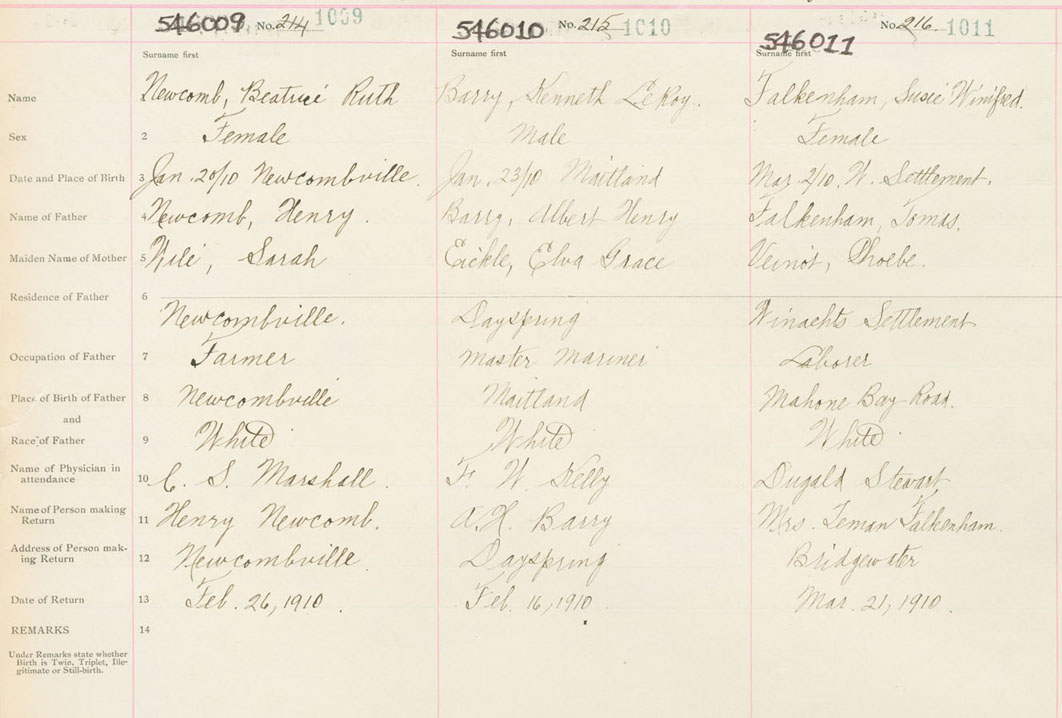 546009 No. 214 1009 546010 No. 215 1010 546011 No. 216 1011
Surname first Surname first Surname first
Name 1 Newcomb, Beatrice Ruth Barry, Kenneth LeRoy. Falkenham, Susie Winifred.
Sex 2 Female Male Female
Date and Place of Birth 3 Jan. 20/10 Newcombville. Jan. 23/10 Maitland Mar. 2/10. W. Settlement.
Name of Father 4 Newcomb, Henry. Barry, Albert Henry Falkenham, Tomas.
Maiden Name of Mother 5 Wile, Sarah Eickle, Elva Grace Veinot, Phoebe.
Residence of Father 6
Newcombville. Dayspring Winachts Settlement
Occupation of Father 7 Farmer Master Mariner Laborer
Place of Birth of Father 8 Newcombville Maitland Mahone Bay Road.
and
Race of Father 9 White White White
Name of Physician in
attendance 10 C. S. Marshall. F. W. Kelly Dugald Stewart
Name of Person making
Return 11 Henry Newcomb. A. H. Barry Mrs. Teman Falkenham.
Address of Person mak-
ing Return 12 Newcombville. Dayspring Bridgewater
Date of Return 13 Feb. 26, 1910. Feb. 16, 1910. Mar. 21, 1910.
REMARKS 14
Under Remarks state whether
Birth is Twin, Triplet, Ille-
gitimate or Still-birth.